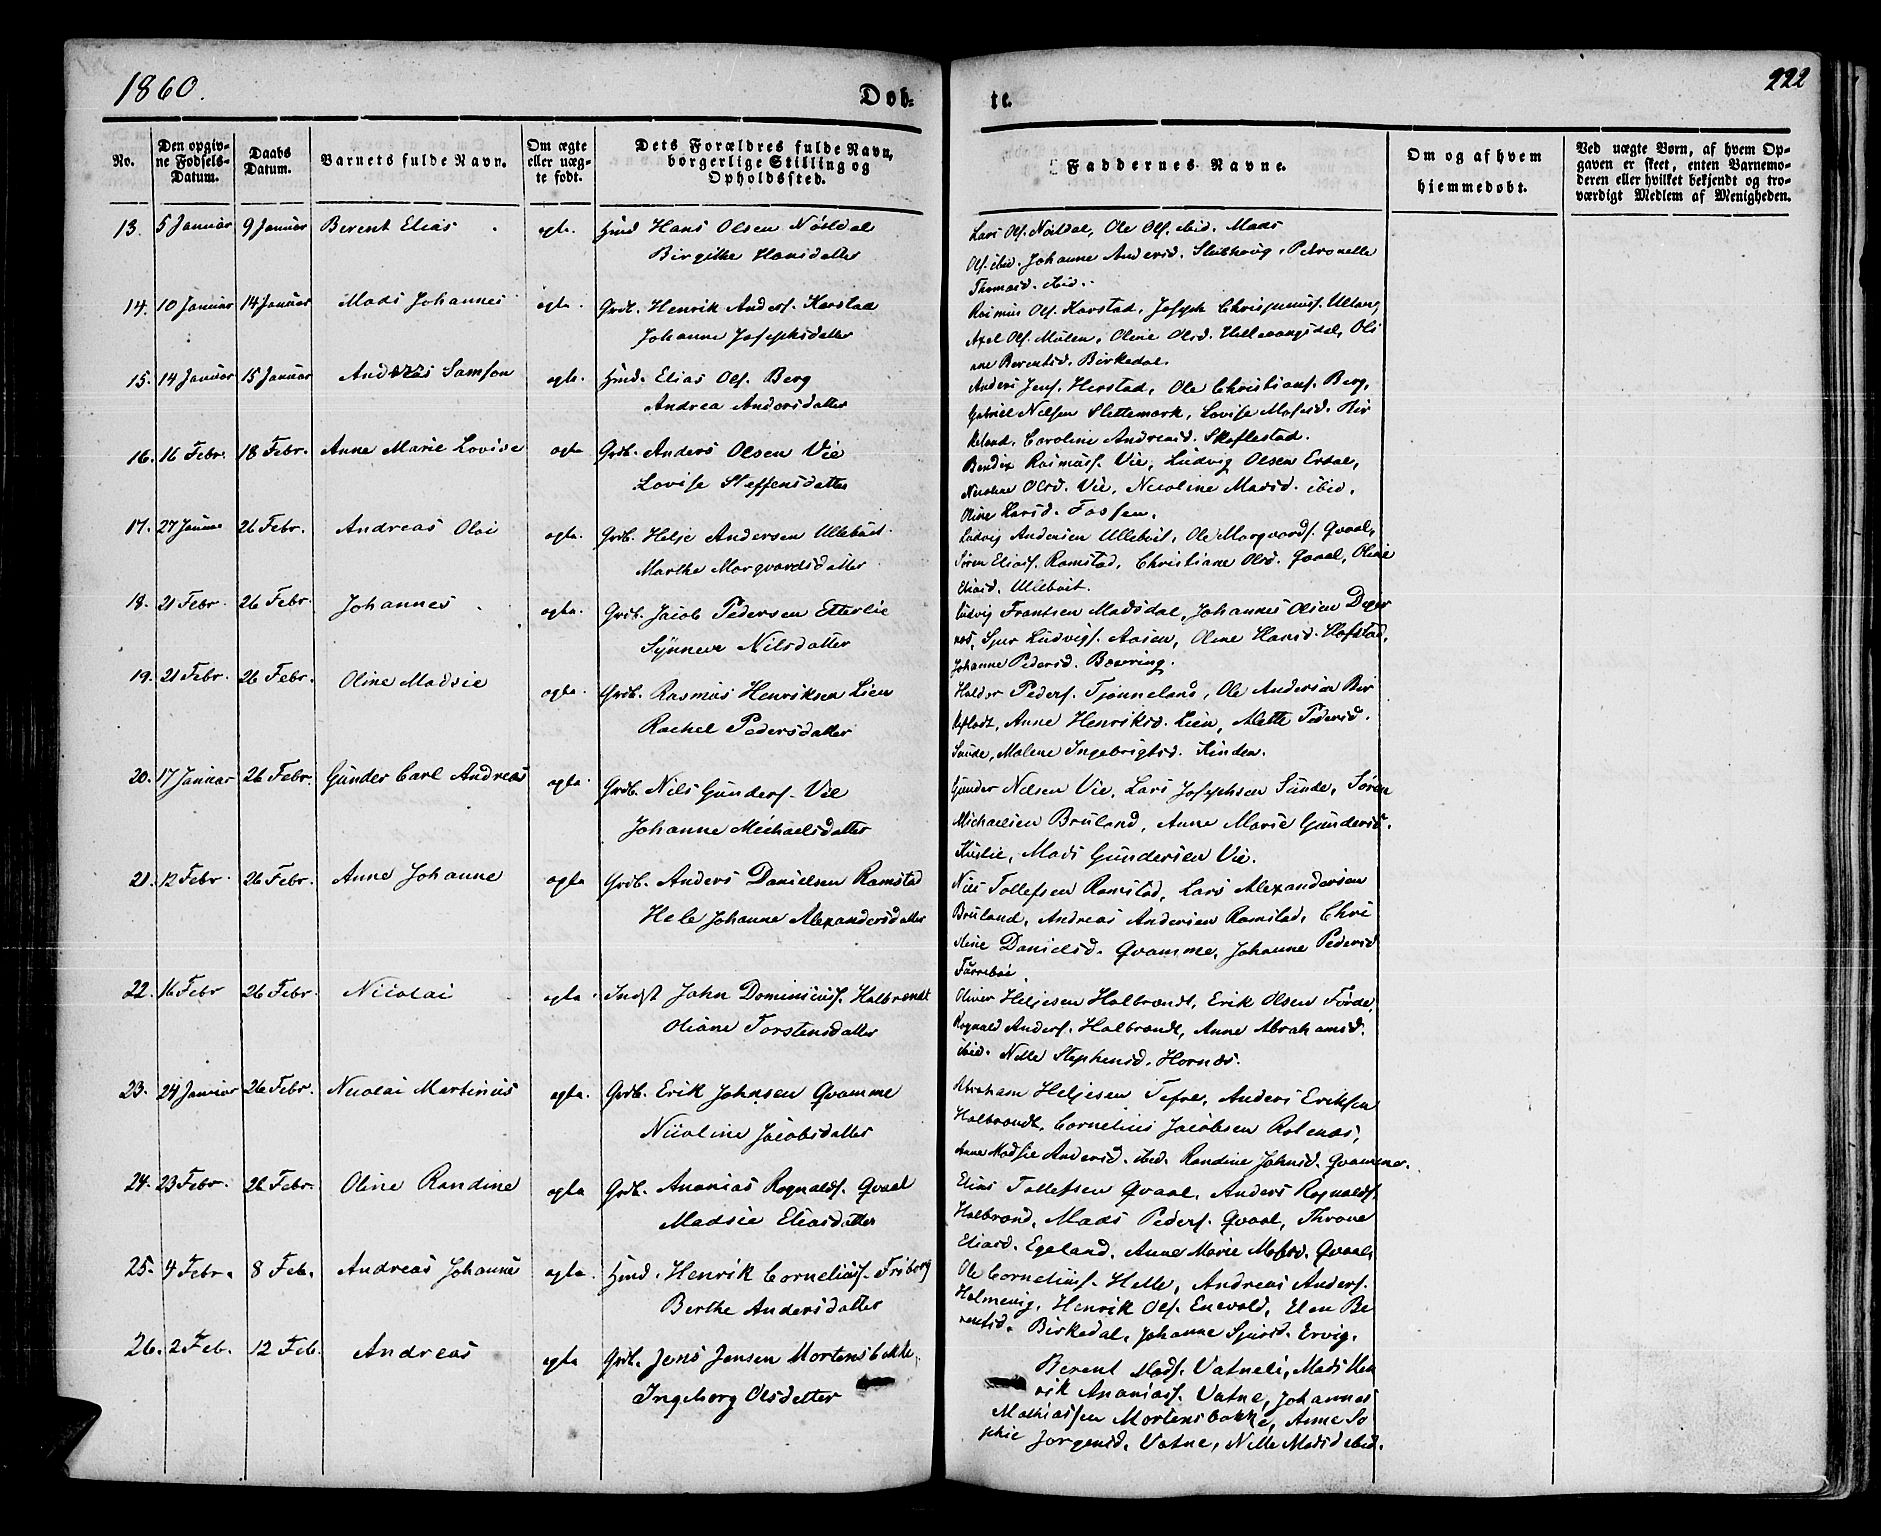 1860.
Døb-
te.
222
No.
Den opgiv-
ne Fødsels-
Datum.
Daabs
Datum.
Barnets fulde Navn.
Om ægte
eller uæg-
te født.
Dets Forældres fulde Navn,
borgerlige Stilling og
Opholdssted.
Faddernes Navne.
Om og af hvem
hjemmedøbt.
Ved uægte Børn, af hvem Op-
gaven er skeet, enten Barnemo-
deren eller hvilket bekjendt og tro-
værdigt Medlem af Menigheden.
13. 5 Januar 9 Januar Berent Elias ægta. Hmd Hans Olsen Nøstdal
Birgithe Hansdatter
Lars Ols. Nøstdal, Ole Ols. ibid. Mads
Ols. ibid. Johanne Andersd. Petronelle
Thomasd. ibid.
14. 10 Januar 14 Januar Mads Johannes ægta. Grdb. Henrik Anders. Karstad
Johanne Josephsdatter
Rasmus Ols. Karstad, Joseph Ultang,
Axel Ols. Mulen, Oline Olsd. Hellevangsdal, Oli
ane Berentsd. Birkedal.
15. 14 Januar 15 Januar Andreas Samson ægta. Hmd. Elias Ols. Berg
Andrea Andersdatter
Anders Jens. Herstad, Ole Christians. Berg,
Gabriel Nelsen Slettemark, Lovise Mosesd. Bir
keland, Caroline Andreasd. Skaflestad.
16. 16 Febr. 18 Febr. Anne Marie Lovise ægta Grdb. Anders Olsen Vie
Lovise Steffensdatter
Bendix Rasmus. Vie, Ludvig Olsen Erdal,
Olsd. Vie, Nicoline Madsd. ibid.
Oline Larsd. Fossen.
17. 27 Januar 26 Febr. Andreas Olai ægta. Grdb. Helje Andersen Ullebust
Marthe Morqvordsdatter
Ludvig Andersen Ullebust, Ole Morqvords. Qvaal,
Søren Elias. Ramstad, Christiane Olsd. Qvaal, Oline
Eliasd. Ullebust.
18. 21 Febr. 26 Febr. Johannes ægta. Grdb. Jacob Pedersen Etterlie
Synneve Nilsdatter
Ludvig Frantsen Madsdal, Johannes Olsen Deger
nes, Sjur Ludvigs. Aasen, Oline Hansd. Hafstad,
Johanne Pedersd. Bowring.
19. 21 Febr. 26 Febr. Oline Madsie ægta. Grdb. Rasmus Henriksen Lien
Rachel Pedersdatter
Haldor Peders. Tjønneland, Ole Andersen Bir
Anne Henriksd. Lien, Mette Pedersd.
Sunde, Malene Ingebrigtsd. Hinden.
20. 17 Januar 26 Febr. Gunder Carl Andreas ægta Grdb. Nils Gunders. Vie
Johanne Michaelsdatter
Gunder Nelsen Vie, Lars Josephsen Sunde, Søren
Michaelsen Bruland, Anne Marie Gundersd.
Huslie, Mads Gundersen Vie.
21. 12 Febr. 26 Febr. Anne Johanne ægta Grdb. Anders Danielsen Ramstad
Hele Johanne Alexandersdatter
Nils Tollefsen Ramstad, Lars Alexandersen
Bruland, Andreas Andersen Ramstad, Chri
stine Danielsd. Qvamme, Johanne Pedersd
Farsebøi.
22. 16 Febr 26 Febr. Nicolai ægta. Indst John Dominicus. Halbrendt
Oliane Torstensdatter
Oliver Heljesen Halbrendt, Erik Olsen Førde,
Ragnald Anders. Halbrendt, Anne Abrahamsd.
ibid. Nelle Stephensd. Hornæs.
23. 24 Januar 26 Febr. Nicolai Martinus ægta. Grdb. Erik Johnsen Qvamme
Nicoline Jacobsdatter
Abraham Heljesen Tefre, Anders Eriksen
Halbrendt, Cornelius Jacobsen Rotenæs,
Anne Madsie Andersd. ibid. Randine Johnsd. Qvamme.
24. 23 Febr. 26 Febr. Oline Randine ægta Grdb. Ananias Ragnalds. Qvaal
Madsie Eliasdatter
Elias Tollefsen Qvaal, Anders Ragnalds.
Halbrend, Mads Peders. Qvaal, Throne
Eliasd. Egeland, Anne Marie Mosesd. Qvaal,
25. 4 Febr. 8 Feb. Andreas Johannes ægta. Hmd. Henrik Cornelius. Friborg
Berthe Andersdatter
Ole Cornelius. Helle, Andreas Anders.
Holmevig, Henrik Ols. Enevold, Elen Be
rentsd. Birkedal, Johanne Sjursd. Ervig.
26. 2 Feb. 12 Feb. Andreas ægta Grdb. Jens Jensen Mortensbakke
Ingeborg Olsdatter
Berent Mads. Vatneli, Mads Hen
rik Ananias. Vatne, Johannes
Mathiassen Mortensbakke, Anne So
phie Jorgensd. Vatne, Nelle Madsd ibid.